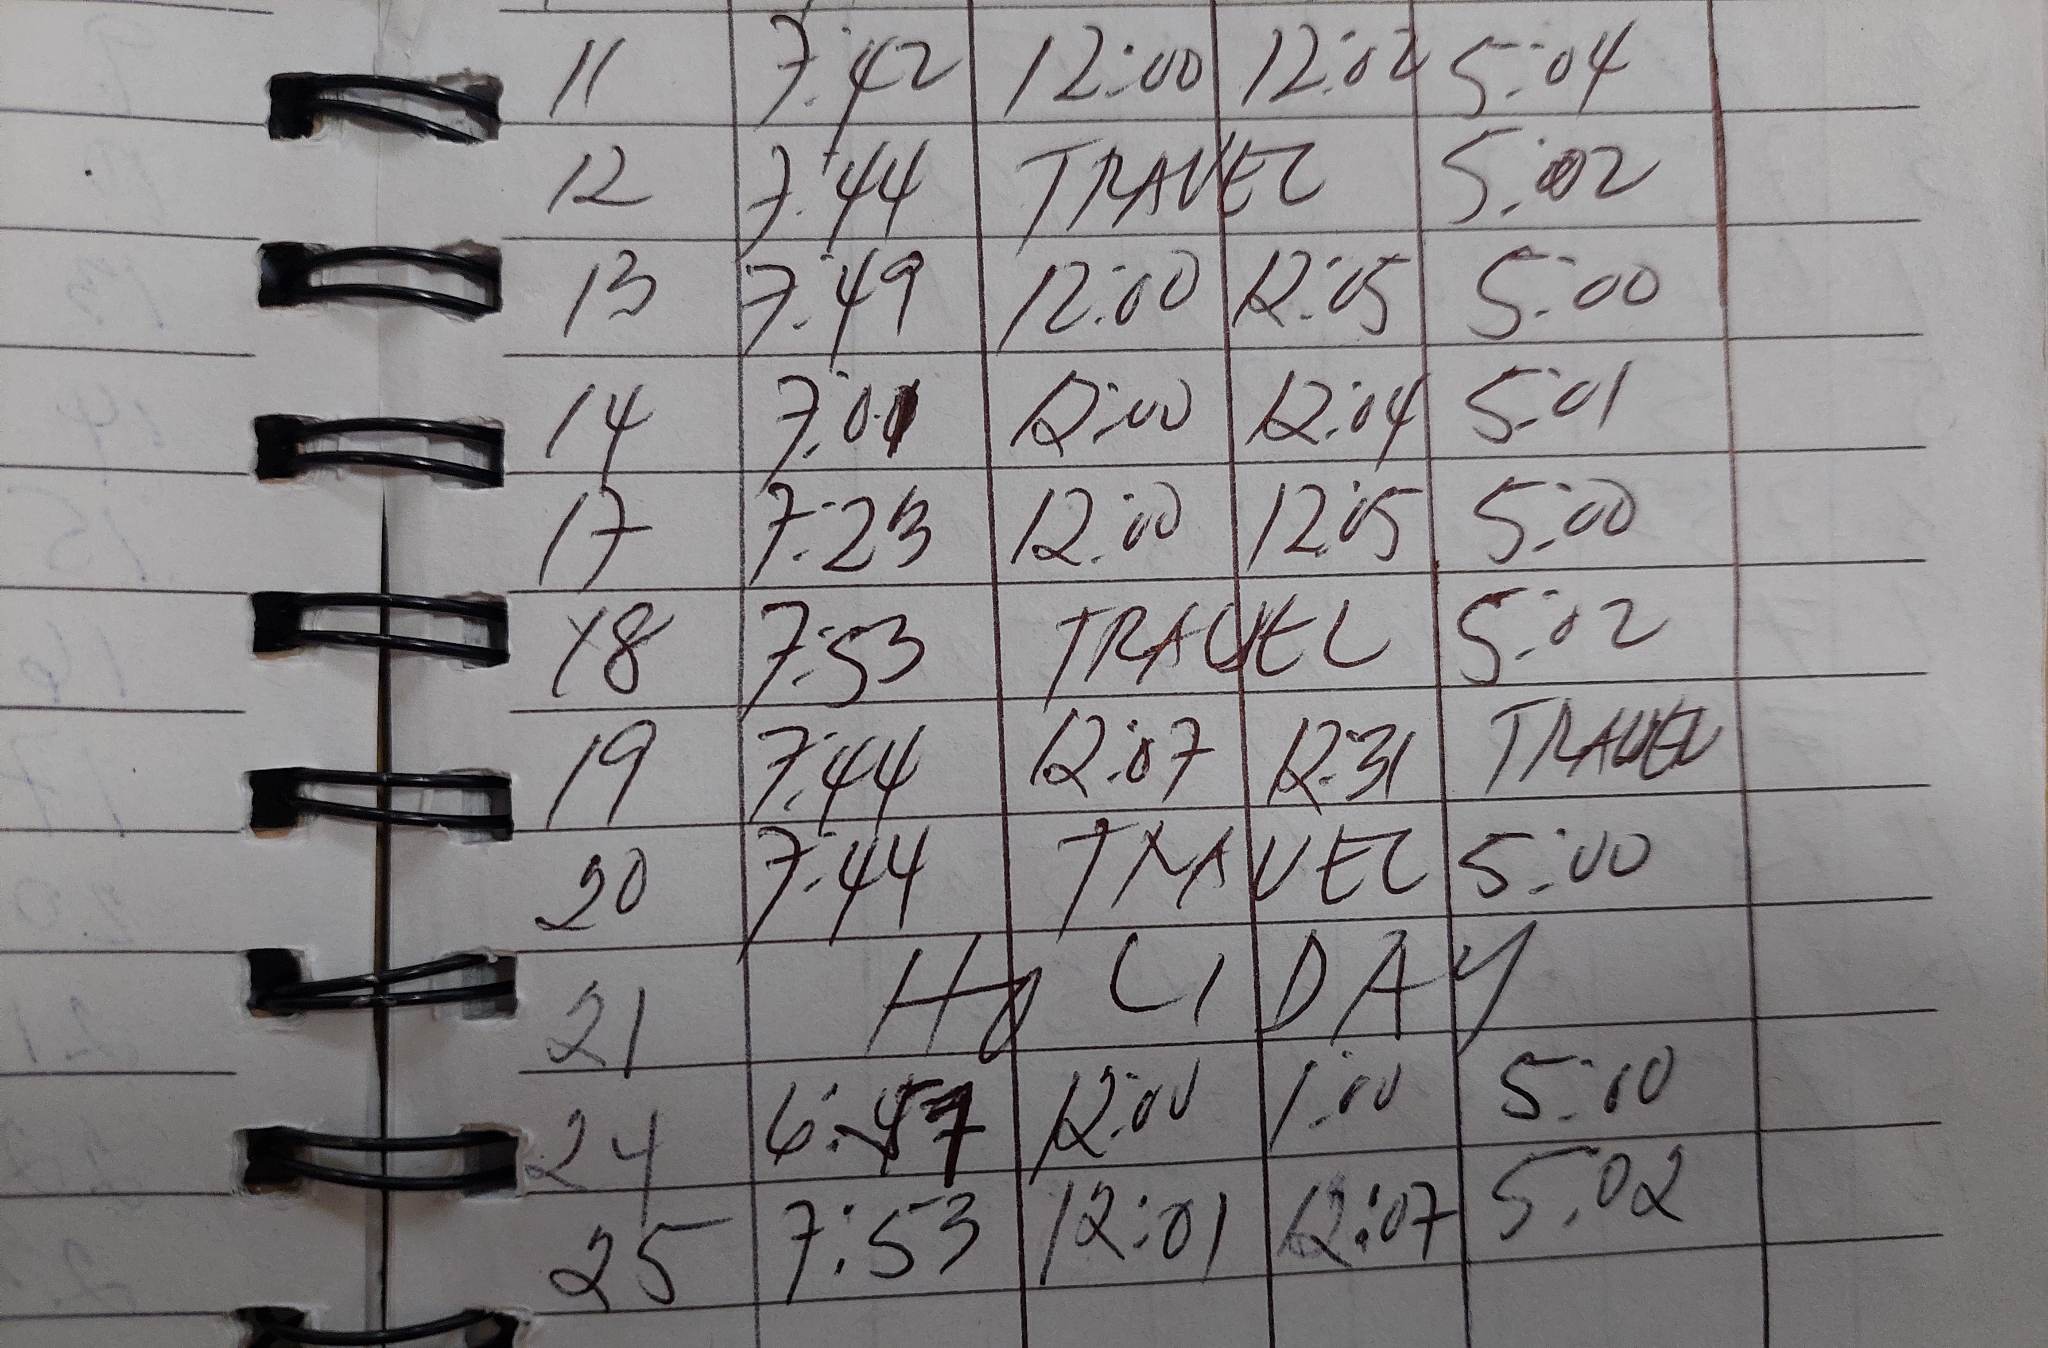 11 7:42 12:00 12:02 5:04
12 7:44 TRAVEL 5:02
13 7:49 12:00 12:05 5:00
14 7:01 12:00 12:04 5:01
17 7:23 12:00 12:05 5:00
18 7:53 TRAVEL 5:02
19 7:44 12:07 12:31 TRAVEL
20 7:44 TRAVEL 5:00
21 HOLIDAY
24 6:57 12:00 1:00 5:00
25 7:53 12:01 12:07 5:02